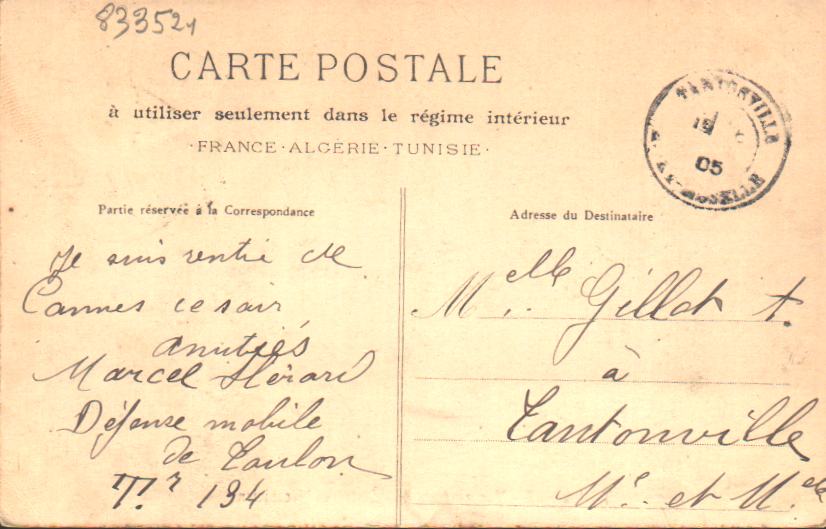 83352y
CARTE POSTALE
à utiliser seulement dans le régime intérieur
·FRANCE·ALGÉRIE·TUNISIE·
TANTONVILLE
19
05
ET-MOSELLE
Partie réservée à la Correspondance
Je suis rentré de
Cannes ce soir
amitiés
Marcel Hérard
Défense mobile
de Toulon
Tr 134
Adresse du Destinataire
Melle Gillot A.
à
Tantonville
Me. et Melle